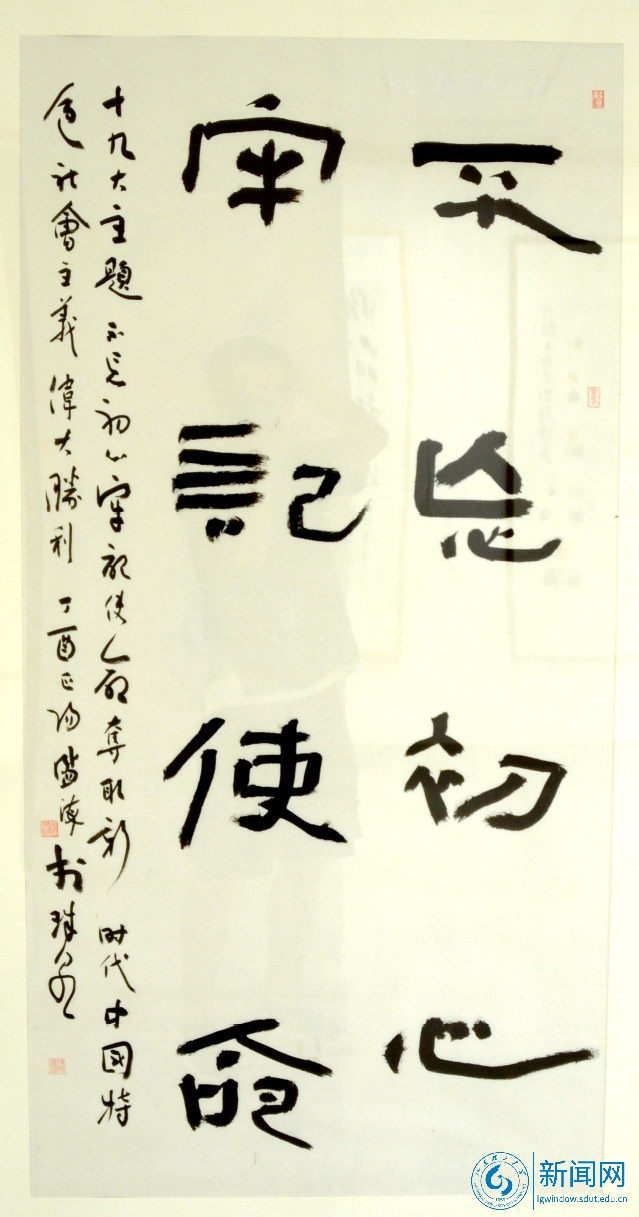 不忘初心
牢记使命
十九大主題不忘初心牢記使命奪取新时代中國特
色社會主義偉大勝利 丁酉
新闻网
lgwindow.sdut.edu.cn